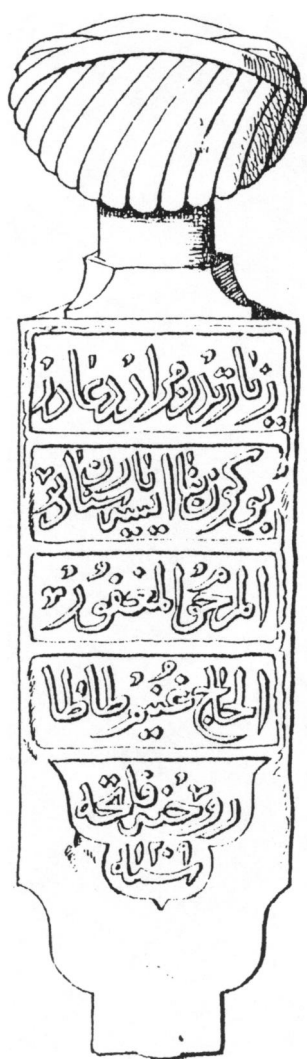 زيارتدن مراد دعادر
بوكون بڭا ايسه يارن سڭادر
المرحوم المغفور
الحاج
روحنه فاتحه
سنه ١٢٠١